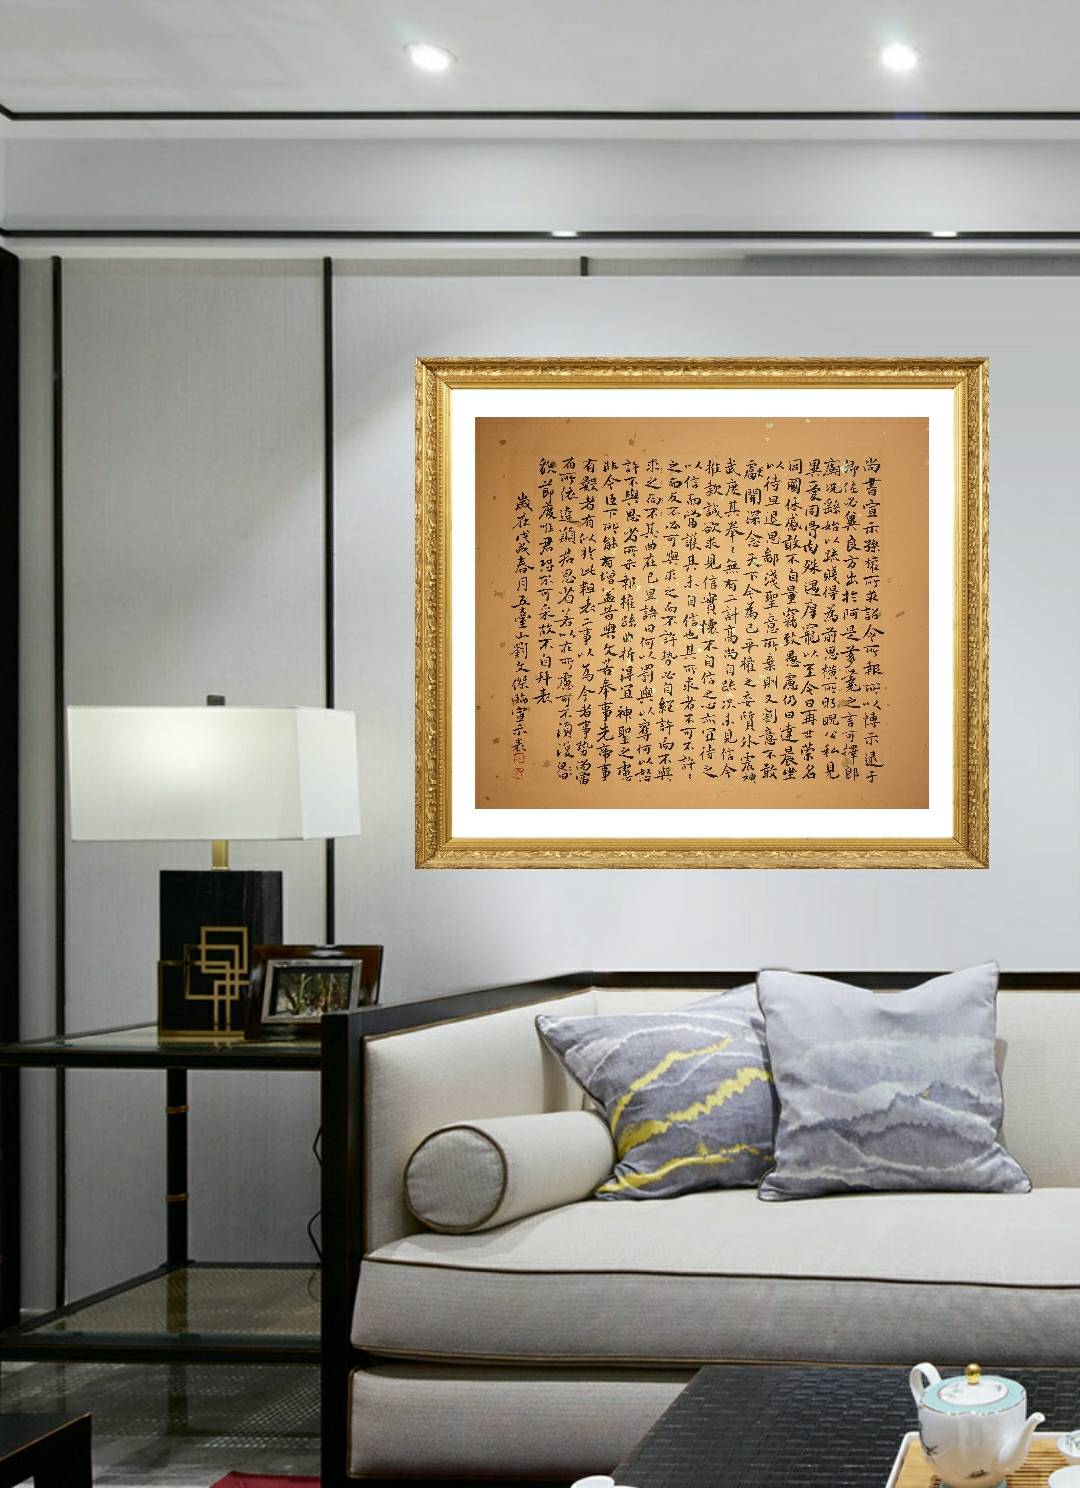 尚書宣示孫權所求詔令所報所以博示逮于
卿佐必冀良方出於阿是芻蕘之言可擇郎
廟況繇始以疏賤得為前恩橫所盼睨公私見
異愛同骨肉殊遇厚寵以至今日再世榮名
同國休慼敢不自量竊致愚慮仍日達晨坐
以待旦退思鄙淺聖意所棄則又割意不敢
獻聞深念天下今為已平權之委質外震神
武度其拳〻無有二計高尚自疏況未見信今
推款誠欲求見信實懷不自信之心亦宜待之
以信而當護其未自信也其所求者不可不許〻
之而反不必可與求之而不許勢必自絕許而不與
求之而不其曲在己里語曰何以罰與以奪何以怒
許不與思省所示報權疏曲折得宜神聖之慮
非今臣下所能有增益昔與文若奉事先帝事
有數者有似於此粗表二事以為今者事勢尚當
有所依違願君思省若以在所慮可不須復
節度唯君恐不可采故不自拜表
歲在戊戌春月五臺山劉文傑臨宣示表